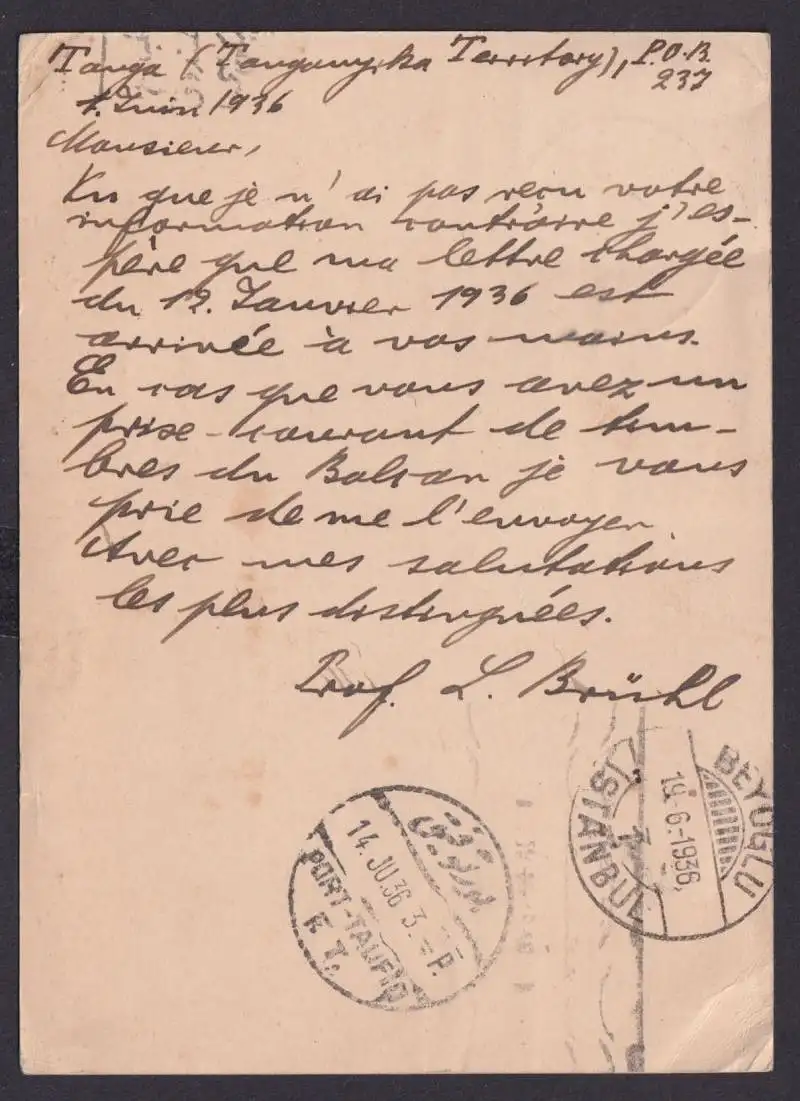 Tanga (Tanganyika Territory), P.O.B.
237
1. Juin 1936
Monsieur,
Vu que je n'ai pas reçu votre
information contraire j'es-
père que ma lettre chargée
du 12. Janvier 1936 est
arrivée à vos mains.
En cas que vous avez un
prise-courant de tim-
bres du Balcan je vous
prie de me l'envoyer.
Avec mes salutations
les plus distinguées.
Prof. L. Brühl
BEYOĞLU
19-6-1936
ISTANBUL
بور توفيق
14.JU.36.3-P.
PORT-TAUFIQ